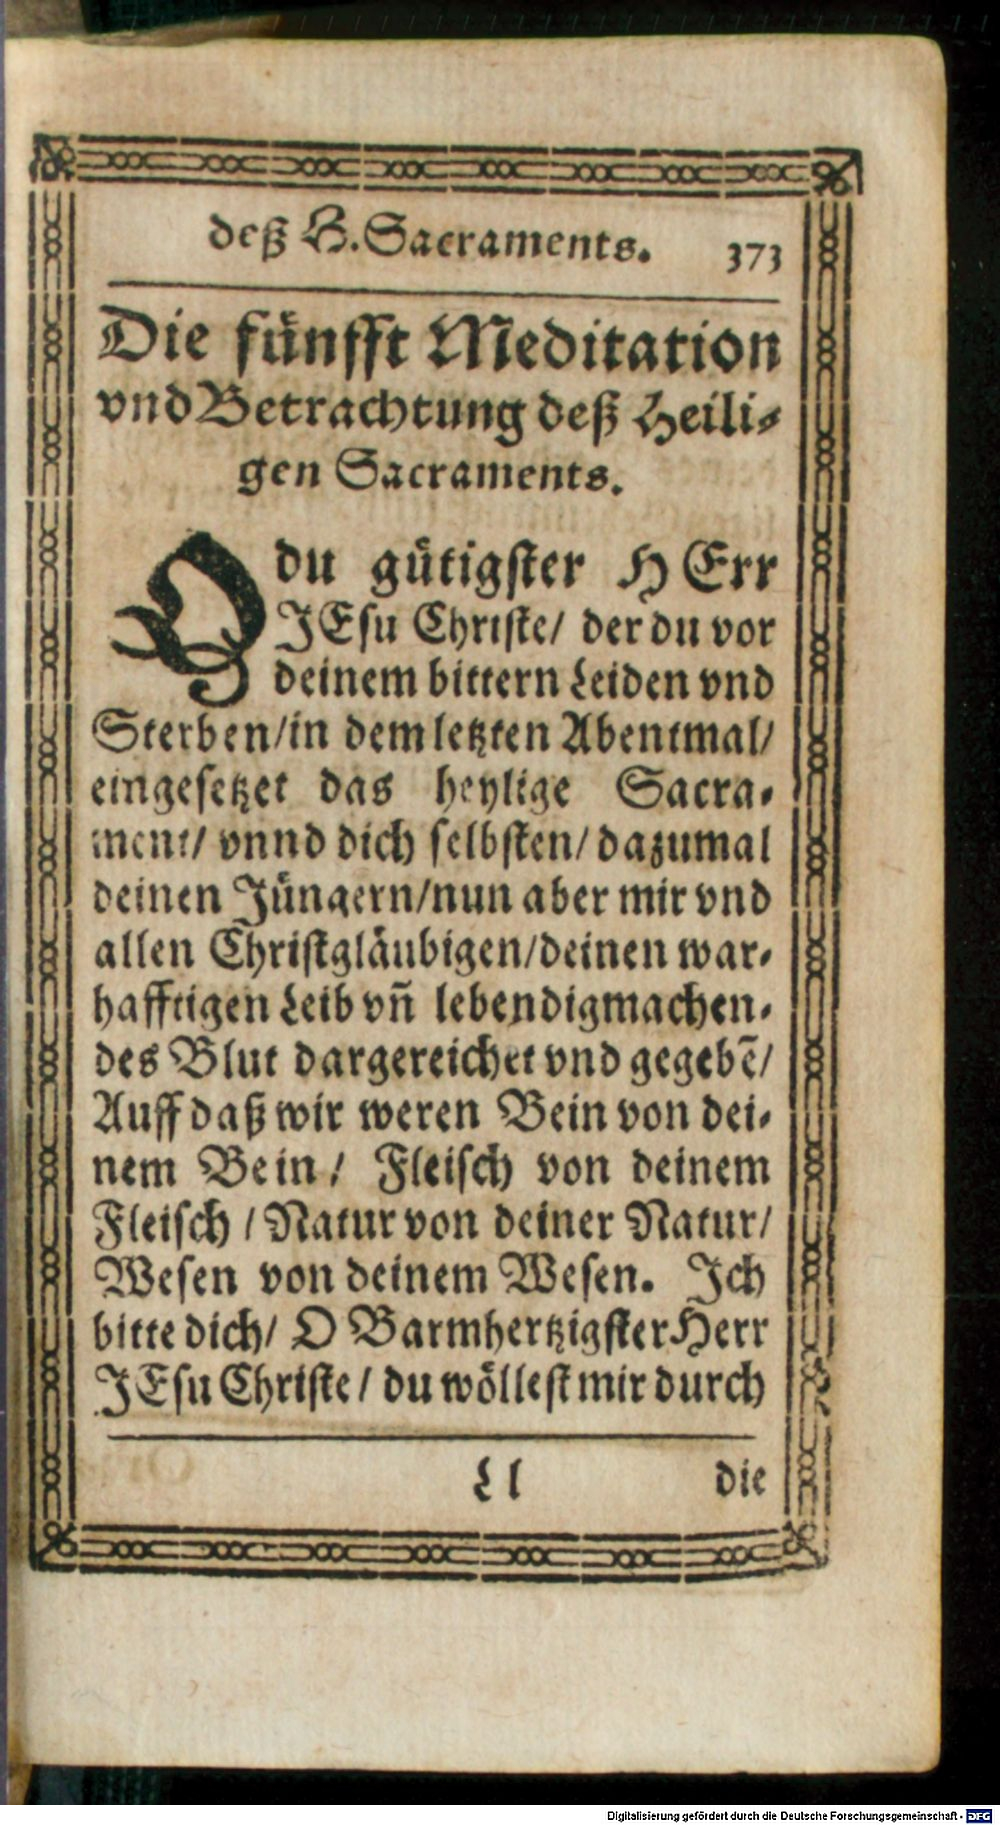 deß H. Sacraments. 373
Die fünfft Meditation
vnd Betrachtung deß Heili-
gen Sacraments.
O du gütigster HErr
JEsu Christe/ der du vor
deinem bittern Leiden vnd
Sterben/in dem letzten Abentmal/
eingesetzet das heylige Sacra-
ment/ vnnd dich selbsten/ dazumal
deinen Jüngern/nun aber mir vnd
allen Christgläubigen/deinen war-
hafftigen Leib vñ lebendigmachen-
des Blut dargereichet vnd gegebẽ/
Auff daß wir weren Bein von dei-
nem Bein/ Fleisch von deinem
Fleisch / Natur von deiner Natur/
Wesen von deinem Wesen. Ich
bitte dich/ O Barmhertzigster Herr
JEsu Christe/ du wöllest mir durch
Ll die
Digitalisierung gefördert durch die Deutsche Forschungsgemeinschaft - DFG